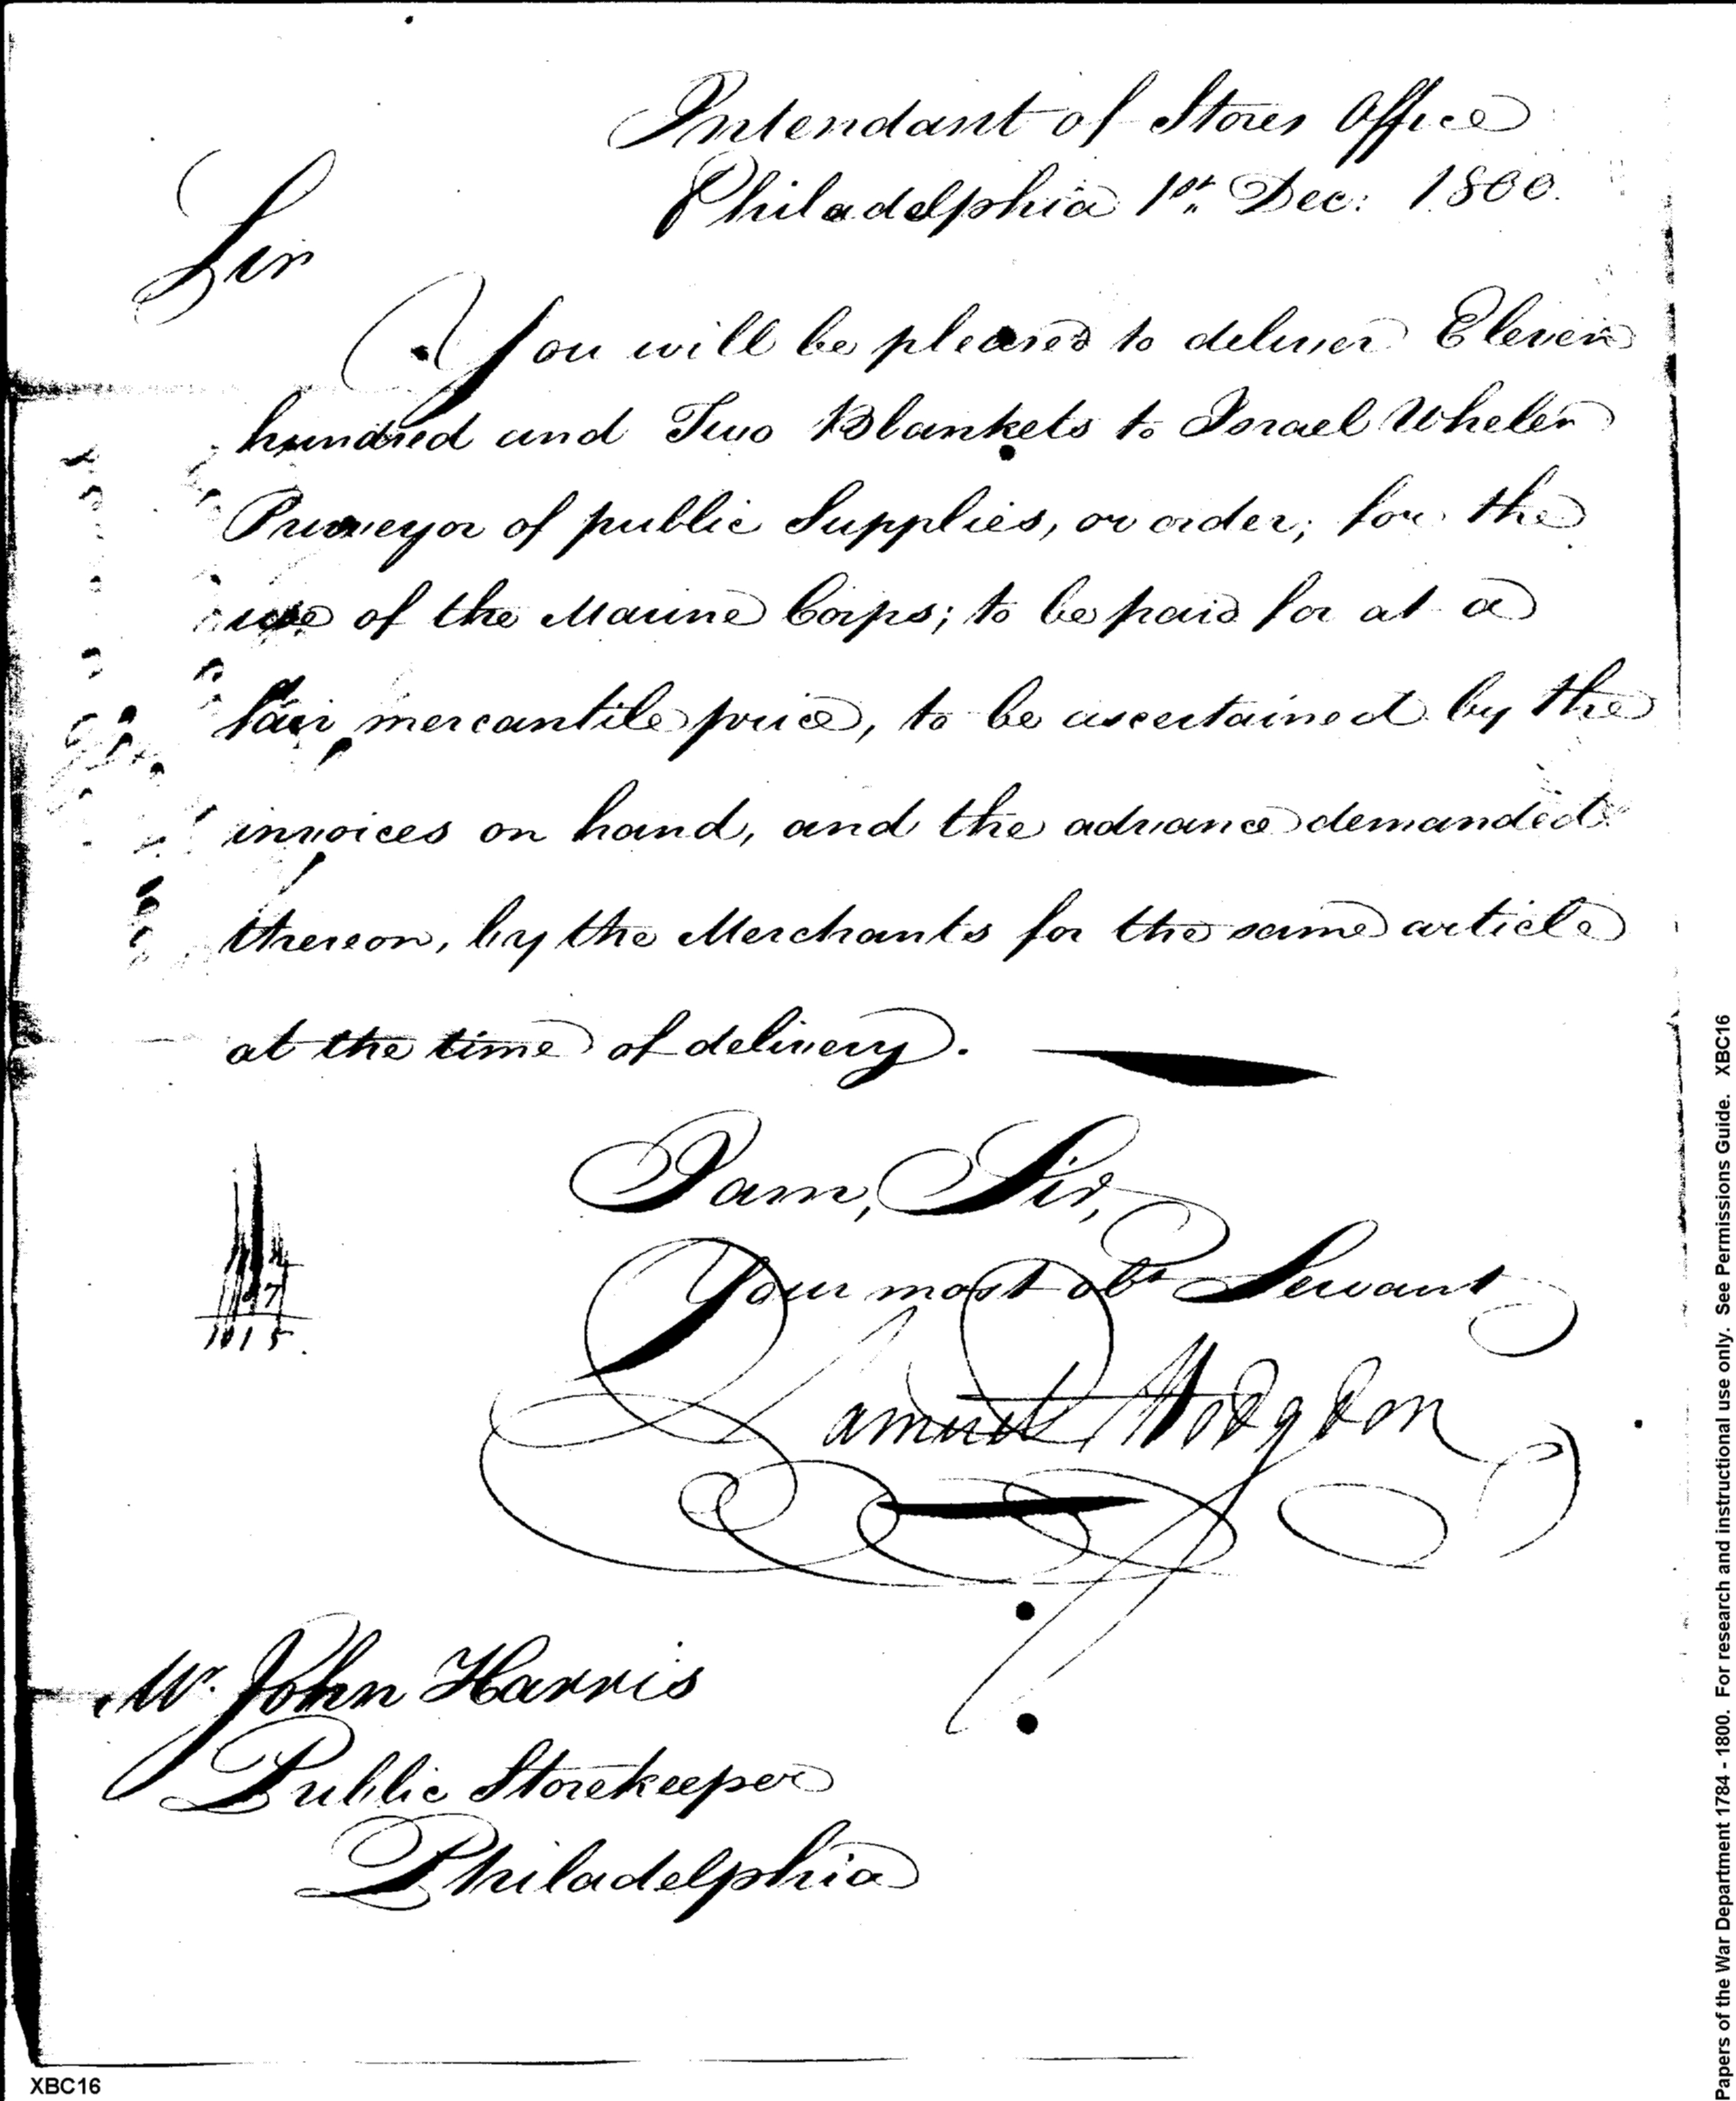 Intendant of Stores Office
Philadelphia 1st Dec: 1800.
Sir
You will be pleased to deliver Eleven
hundred and Two Blankets to Israel Whelen
Purveyor of public Supplies, or order; for the
use of the Marine Corps; to be paid for at a
fair mercantile price, to be ascertained by the
invoices on hand, and the advance demanded
thereon, by the Merchants for the same article
at the time of delivery.
I am, Sir,
Your most obt Servant
Samuel Hodgdon
1015
Mr. John Harris
Public Storekeeper
Philadelphia
XBC16
Papers of the War Department 1784 - 1800. For research and instructional use only. See Permissions Guide. XBC16